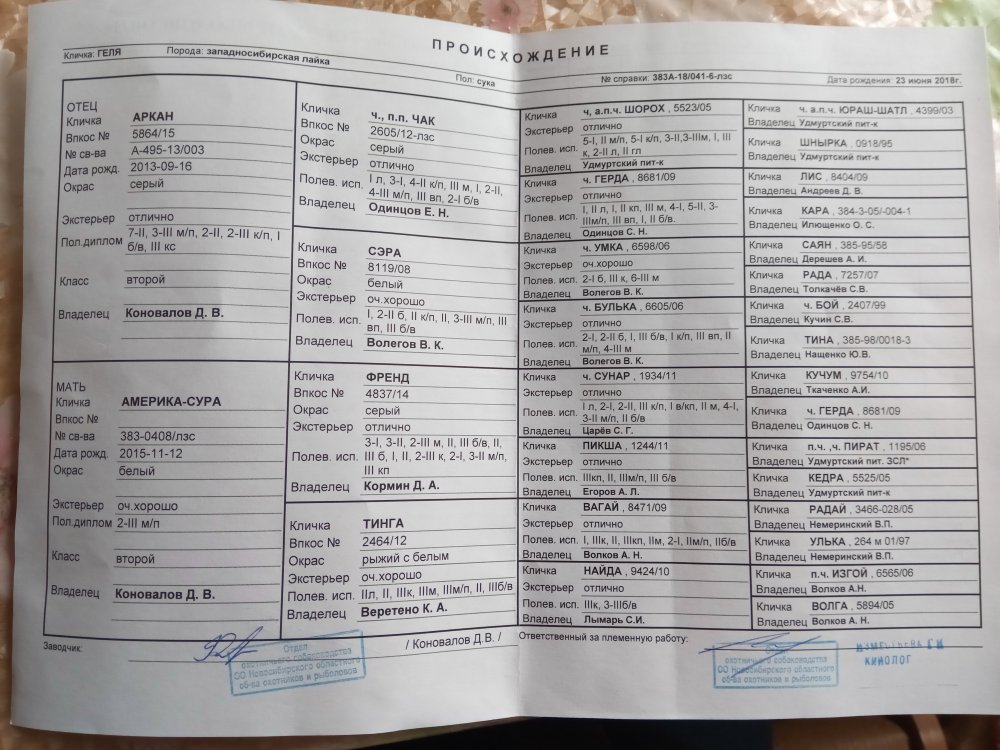 ПРОИСХОЖДЕНИЕ
Кличка: ГЕЛЯ Порода: западносибирская лайка Пол: сука № справки: 383А-18/041-6-лзс Дата рождения: 23 июня 2018г.
ОТЕЦ
Кличка АРКАН
Впкос № 5864/15
№ св-ва А-495-13/003
Дата рожд. 2013-09-16
Окрас серый
Экстерьер отлично
Пол.диплом 7-II, 3-III м/п, 2-II, 2-III к/п, I
б/в, III кс
Класс второй
Владелец Коновалов Д. В.
МАТЬ
Кличка АМЕРИКА-СУРА
Впкос №
№ св-ва 383-0408/лзс
Дата рожд. 2015-11-12
Окрас белый
Экстерьер оч.хорошо
Пол.диплом 2-III м/п
Класс второй
Владелец Коновалов Д. В.
Кличка ч., п.п. ЧАК
Впкос № 2605/12-лзс
Окрас серый
Экстерьер отлично
Полев. исп. I л, 3-I, 4-II к/п, III м, I, 2-II,
4-III м/п, III вп, 2-I б/в
Владелец Одинцов Е. Н.
Кличка СЭРА
Впкос № 8119/08
Окрас белый
Экстерьер оч.хорошо
Полев. исп. I, 2-II б, II к/п, II, 3-III м/п, III
вп, III б/в
Владелец Волегов В. К.
Кличка ФРЕНД
Впкос № 4837/14
Окрас серый
Экстерьер отлично
Полев. исп. 3-I, 3-II, 2-III м, II, III б/в, II,
III б, I, II, 2-III к, 2-I, 3-II м/п,
III кп
Владелец Кормин Д. А.
Кличка ТИНГА
Впкос № 2464/12
Окрас рыжий с белым
Экстерьер оч.хорошо
Полев. исп. IIл, II, IIIк, IIIм, IIIм/п, II, IIIб/в
Владелец Веретено К. А.
Кличка ч, а.п.ч. ШОРОХ , 5523/05
Экстерьер отлично
Полев. исп. 5-I, II м/п, 5-I к/п, 3-II,3-IIIм, I, III
к, 2-II л, II гл
Владелец Удмуртский пит-к
Кличка ч. ГЕРДА , 8681/09
Экстерьер отлично
Полев. исп. I, II л, I, II кп, III м, 4-I, 5-II, 3-
IIIм/п, III вп, I, II б/в.
Владелец Одинцов С. Н.
Кличка ч. УМКА , 6598/06
Экстерьер оч.хорошо
Полев. исп. 2-I б, III к, 6-III м
Владелец Волегов В. К.
Кличка ч. БУЛЬКА , 6605/06
Экстерьер отлично
Полев. исп. 2-I, 2-II б, I, III б/в, I к/п, III вп, II
м/п, 4-III м
Владелец Волегов В. К.
Кличка ч. СУНАР , 1934/11
Экстерьер отлично
Полев. исп. I л, 2-I, 2-II, III к/п, I в/кп, II м, 4-I,
3-II м/п, II б/в
Владелец Царёв С. Г.
Кличка ПИКША , 1244/11
Экстерьер отлично
Полев. исп. IIIкп, II, IIIм/п, III б/в
Владелец Егоров А. Л.
Кличка ВАГАЙ , 8471/09
Экстерьер отлично
Полев. исп. I, IIIк, II, IIIкп, IIм, 2-I, IIм/п, IIб/в
Владелец Волков А. Н.
Кличка НАЙДА , 9424/10
Экстерьер отлично
Полев. исп. IIIк, 3-IIIб/в
Владелец Лымарь С.И.
Кличка ч. а.п.ч. ЮРАШ-ШАТЛ , 4399/03
Владелец Удмуртский пит-к
Кличка ШНЫРКА , 0918/95
Владелец Удмуртский пит-к
Кличка ЛИС , 8404/09
Владелец Андреев Д. В.
Кличка КАРА , 384-3-05/-004-1
Владелец Илющенко О. С.
Кличка САЯН , 385-95/58
Владелец Дерешев А. И.
Кличка РАДА , 7257/07
Владелец Толкачёв С.В.
Кличка ч. БОЙ , 2407/99
Владелец Кучин С.В.
Кличка ТИНА , 385-98/0018-3
Владелец Нащенко Ю.В.
Кличка КУЧУМ , 9754/10
Владелец Ткаченко А.И.
Кличка ч. ГЕРДА , 8681/09
Владелец Одинцов С. Н.
Кличка п.ч. ,ч. ПИРАТ , 1195/06
Владелец Удмуртский пит. ЗСЛ*
Кличка КЕДРА , 5525/05
Владелец Удмуртский пит-к
Кличка РАДАЙ , 3466-028/05
Владелец Немеринский В.П.
Кличка УЛЬКА , 264 м 01/97
Владелец Немеринский В.П.
Кличка п.ч. ИЗГОЙ , 6565/06
Владелец Волков А.Н.
Кличка ВОЛГА , 5894/05
Владелец Волков А. Н.
Заводчик: / Коновалов Д.В. / Ответственный за племенную работу:
Отдел
охотничьего собаководства
ОО Новосибирского областного
об-ва охотников и рыболовов
охотничьего собаководства
ОО Новосибирского областного
об-ва охотников и рыболовов
КИНОЛОГ